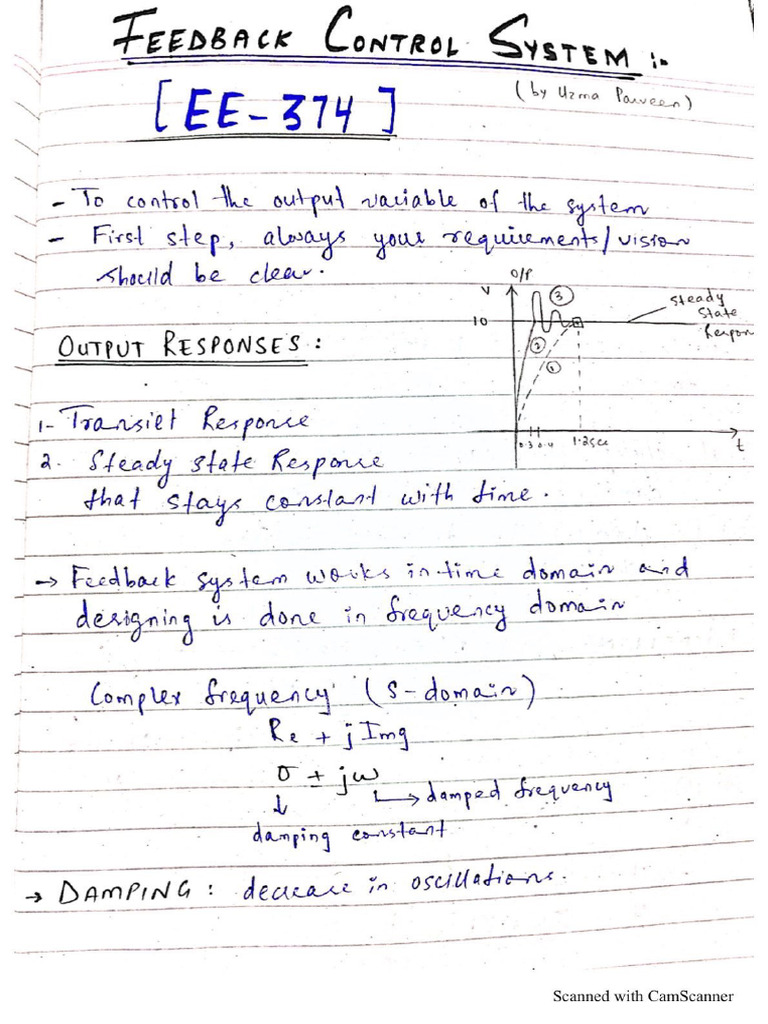 FEEDBACK CONTROL SYSTEM :-
[EE-374]
(by Uzma Parveen)
- To control the output variable of the system
- First step, always your requirements/vision
should be clear.
O/P
V
3
Steady
State
Respon
10
2
1
0.3 0.4 1.2sec
t
OUTPUT RESPONSES :
1- Transiet Response
2. Steady state Response
that stays constant with time.
→ Feedback system works in time domain and
designing is done in frequency domain
Complex frequency (S-domain)
Re + j Img
σ ± jω
→ damped frequency
↓
damping constant
→ DAMPING : decrease in oscillations.
Scanned with CamScanner